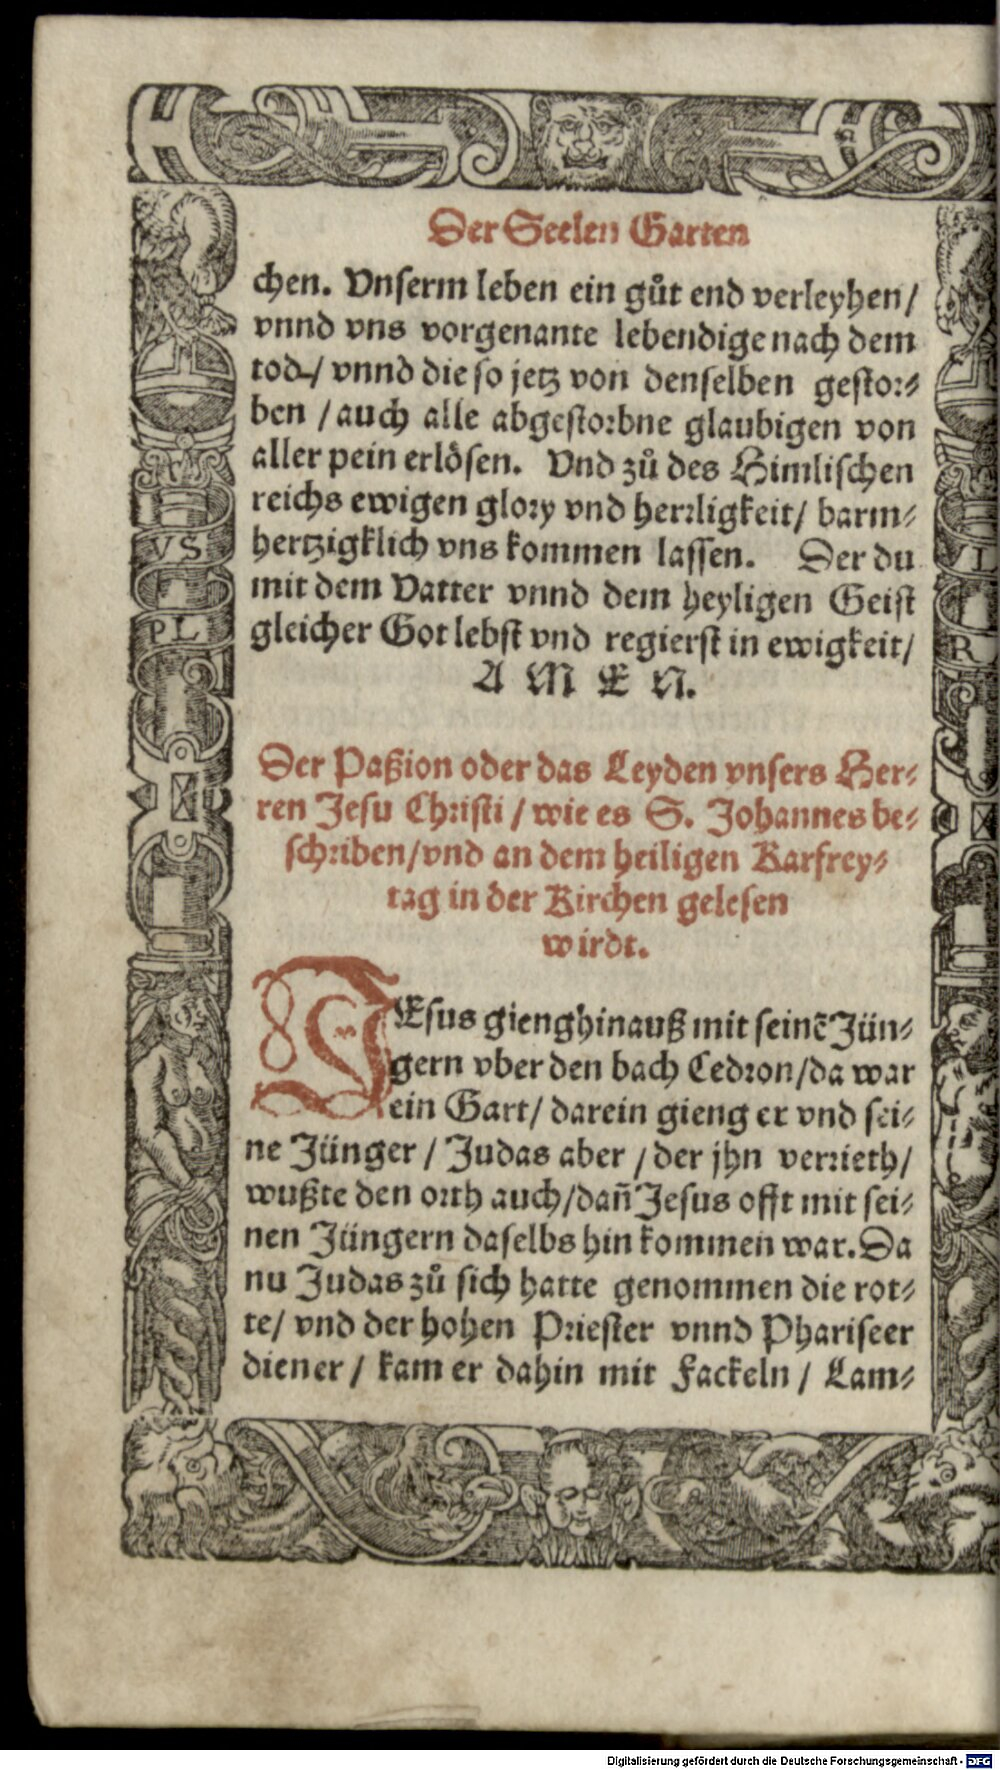 Der Seelen Garten
chen. Vnserm leben ein gůt end verleyhen/
vnnd vns vorgenante lebendige nach dem
tod/ vnnd die so jetz von denselben gestor⸗
ben / auch alle abgestorbne glaubigen von
aller pein erlösen. Vnd zů des Himlischen
reichs ewigen glory vnd herrligkeit/ barm⸗
hertzigklich vns kommen lassen. Der du
mit dem Vatter vnnd dem heyligen Geist
gleicher Got lebst vnd regierst in ewigkeit/
A M E N.
Der Paßion oder das Leyden vnsers Her⸗
ren Jesu Christi / wie es S. Johannes be⸗
schriben/ vnd an dem heiligen Karfrey⸗
tag in der Kirchen gelesen
wirdt.
JEsus gieng hinauß mit seinẽ Jün⸗
gern vber den bach Cedron/ da war
ein Gart/ darein gieng er vnd sei⸗
ne Jünger / Judas aber / der jhn verrieth/
wußte den orth auch/ dañ Jesus offt mit sei⸗
nen Jüngern daselbs hin kommen war. Da
nu Judas zů sich hatte genommen die rot⸗
te/ vnd der hohen Priester vnnd Phariseer
diener / kam er dahin mit Fackeln / Lam⸗
VS
PL
I
R
Digitalisierung gefördert durch die Deutsche Forschungsgemeinschaft - DFG